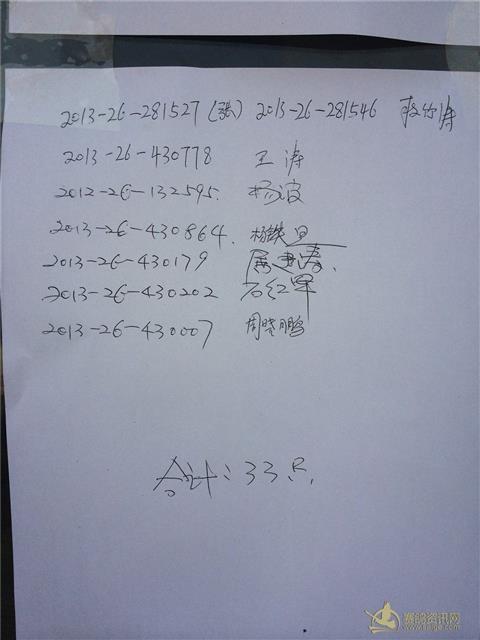 2013-26-281527 (张) 2013-26-281546
2013-26-430778 王涛
2012-26-132595. 杨波
2013-26-430864. 杨铁
2013-26-430179
2013-26-430202 石红军
2013-26-430007 周晓鹏
合计: 33只.
赛鸽资讯网